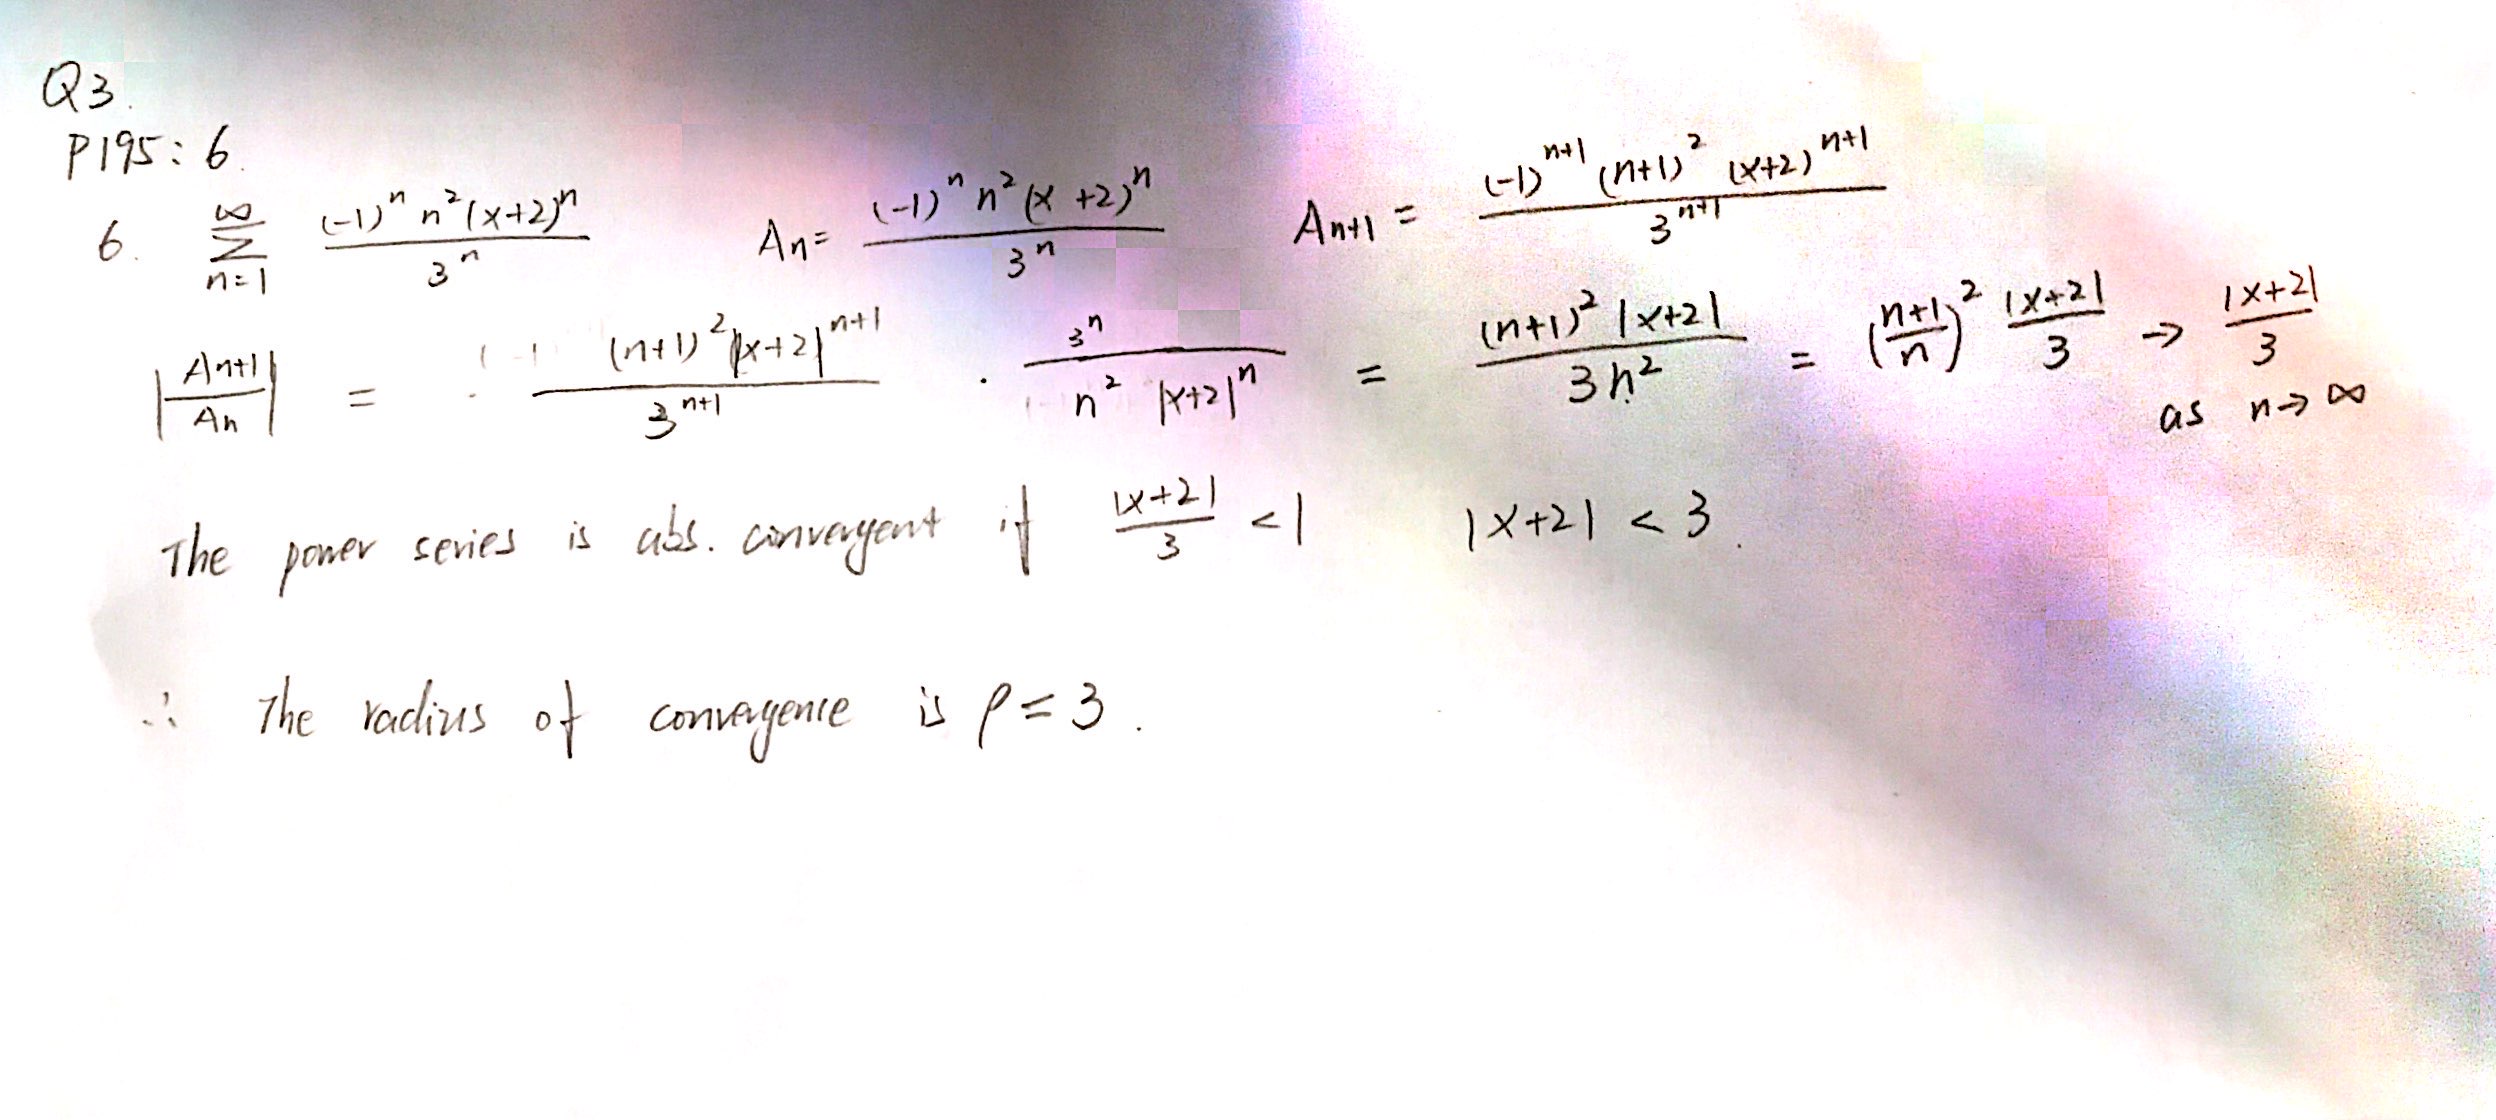 Q3.
P195: 6.
6. \sum_{n=1}^{\infty} \frac{(-1)^n n^2 (x+2)^n}{3^n} A_n = \frac{(-1)^n n^2 (x+2)^n}{3^n} A_{n+1} = \frac{(-1)^{n+1} (n+1)^2 (x+2)^{n+1}}{3^{n+1}}
\left| \frac{A_{n+1}}{A_n} \right| = \frac{(n+1)^2 |x+2|^{n+1}}{3^{n+1}} \cdot \frac{3^n}{n^2 |x+2|^n} = \frac{(n+1)^2 |x+2|}{3n^2} = \left( \frac{n+1}{n} \right)^2 \frac{|x+2|}{3} → \frac{|x+2|}{3}
as n→∞
The power series is abs. convergent if \frac{|x+2|}{3} < 1 |x+2| < 3.
∴ The radius of convergence is ρ = 3.